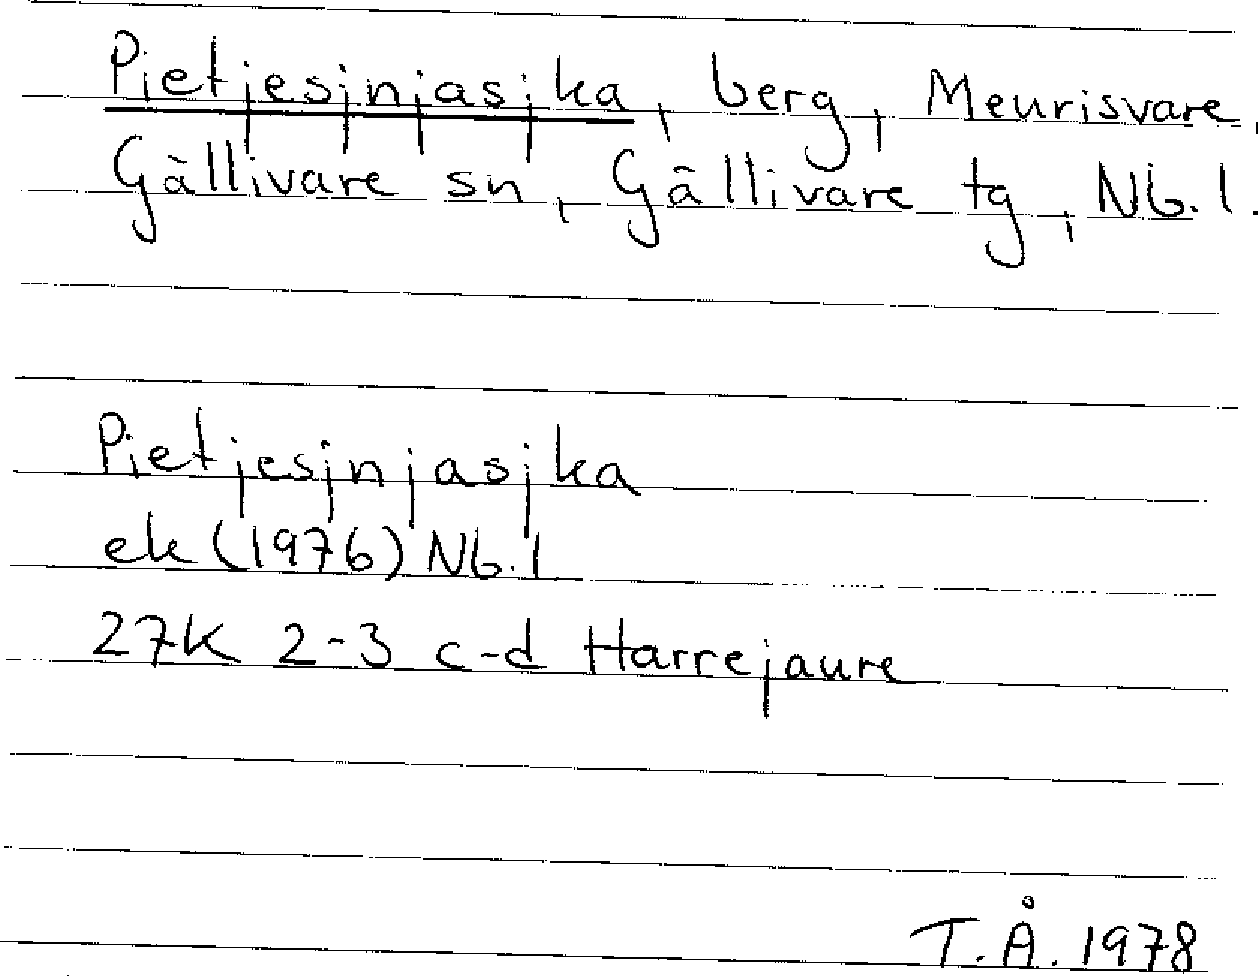 Pietjesjnjasjka, berg, Meurisvare,
Gällivare sn, Gällivare tg, Nb. l.
Pietjesjnjasjka
ek (1976) Nb. l
27K 2-3 c-d Harrejaure
T.Å. 1978